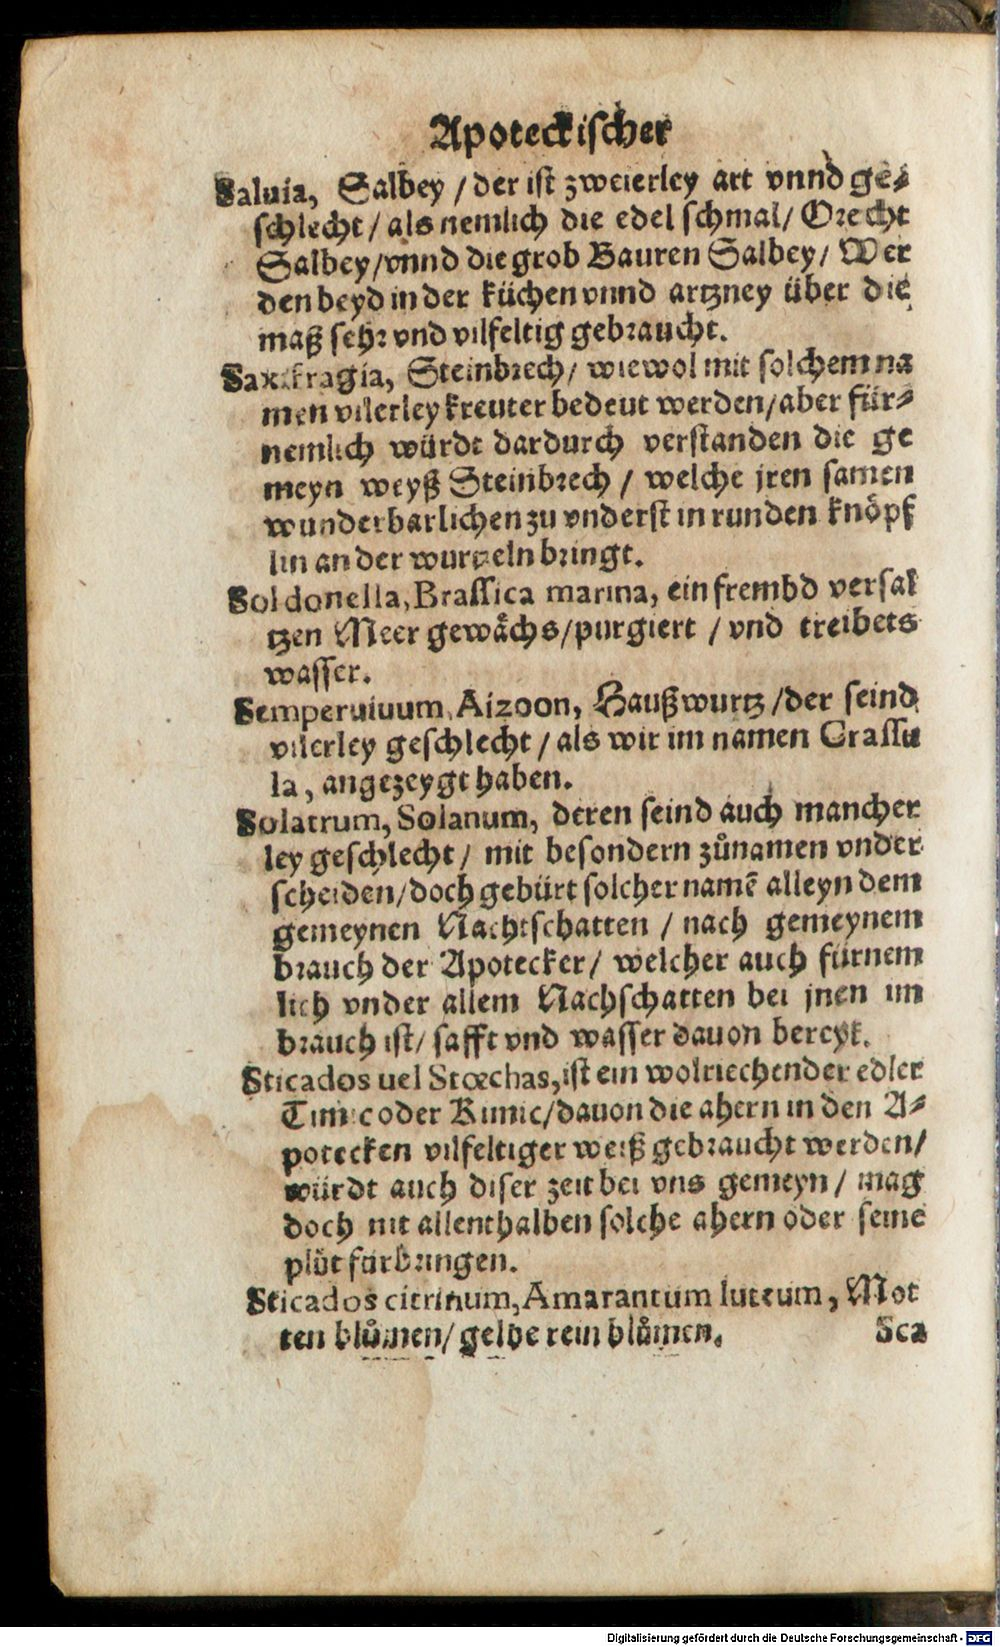 Apoteckischer
Saluia, Salbey / der ist zweierley art vnnd ge⸗
schlecht / als nemlich die edel schmal / Orecht
Salbey / vnnd die grob Bauren Salbey / Wer
den beyd in der küchen vnnd artzney über die
maß sehr vnd vilfeltig gebraucht.
Saxifragia, Steinbrech / wiewol mit solchem na
men vilerley kreuter bedeut werden / aber für⸗
nemlich würdt dardurch verstanden die ge
meyn weyß Steinbrech / welche jren samen
wunderbarlichen zu vnderst in runden knöpf
lin an der wurtzeln bringt.
Soldonella, Brassica marina, ein frembd versal
tzen Meer gewächs / purgiert / vnd treibets
wasser.
Semperuiuum, Aizoon, Haußwurtz / der seind
vilerley geschlecht / als wir im namen Crassu
la, angezeygt haben.
Solatrum, Solanum, deren seind auch mancher
ley geschlecht / mit besondern zůnamen vnder
scheiden / doch gebürt solcher namẽ alleyn dem
gemeynen Nachtschatten / nach gemeynem
brauch der Apotecker / welcher auch fürnem
lich vnder allem Nachschatten bei jnen im
brauch ist / safft vnd wasser dauon bereyt.
Sticados uel Stœchas, ist ein wolriechender edler
Timic oder Kimic / dauon die ahern in den A⸗
potecken vilfeltiger weiß gebraucht werden /
würdt auch diser zeit bei vns gemeyn / mag
doch nit allenthalben solche ahern oder seine
plüt fürbringen.
Sticados citrinum, Amarantum luteum, Mot
ten blůmen / gelbe rein blůmen.
Sca
Digitalisierung gefördert durch die Deutsche Forschungsgemeinschaft - DFG